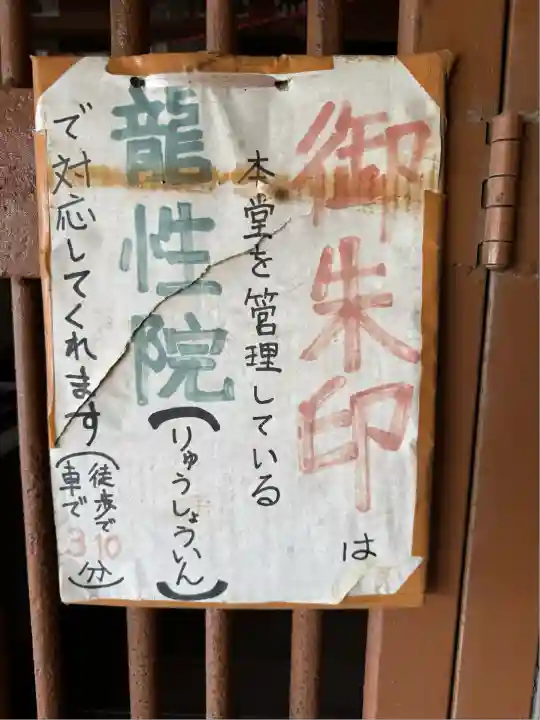 御朱印は
本堂を管理している
龍性院(りゅうしょういん)
で対応してくれます(徒歩で10
車で3分)